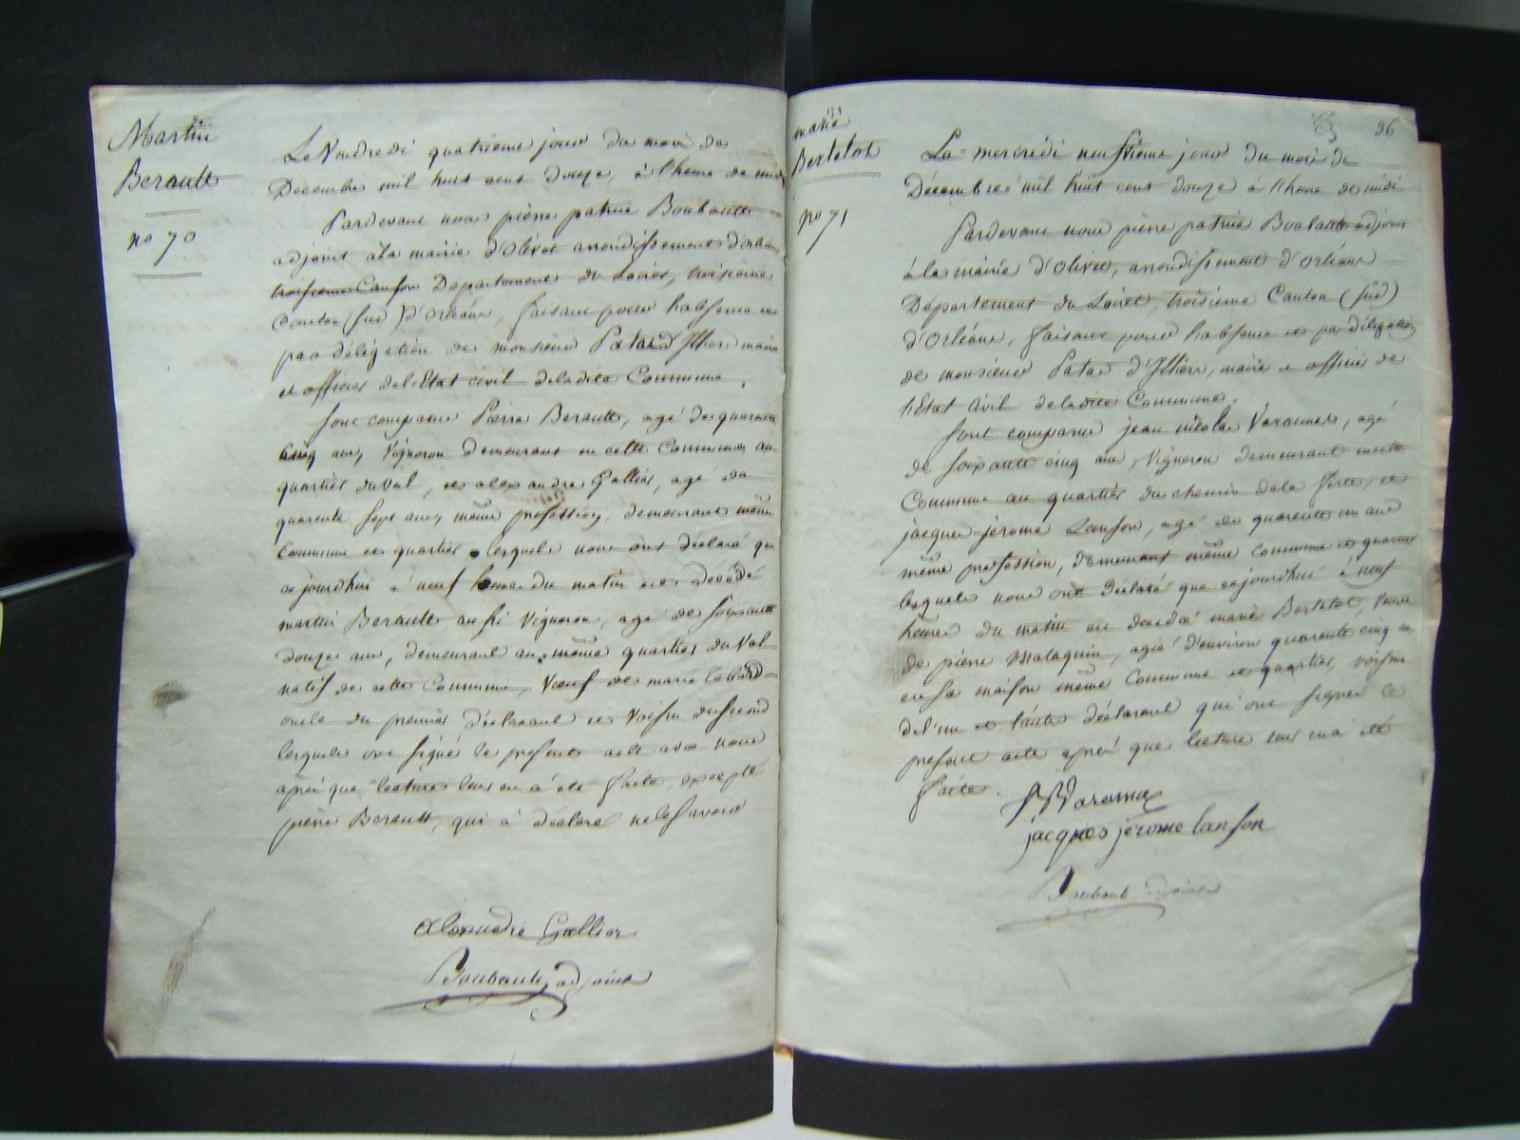 Martin
Berault
no 70
Le Vendredi quatrieme jour du mois de
Decembre mil huit cent douze, à l'heure de midi
Pardevant nous pierre patrice Boubault
adjoint à la mairie d'Olivet arrondissement d'orléans
troisieme Canton Departement du Loiret, troisieme
Canton (sud) d'Orléans, faisant pour l'absence et
par délégation de monsieur Patas d'Illiers maire
et officier de l'Etat civil de ladite Commune,
sont comparus Pierre Berault, agé de quarante
cinq ans, Vigneron demeurant en cette Commune au
quartier du Val, et alexandre Gallier, agé de
quarente sept ans, même profession, demeurant même
Commune et quartier lesquels nous ont déclaré que
ce jourd'hui à neuf heures du matin est décédé
martin Berault aussi Vigneron, agé de soixante
douze ans, demeurant au même quartier du Val
natif de cette Commune, Veuf de marie
oncle du premier déclarant et Voisin du second
lesquels ont signé le present acte avec nous
après que lecture leur en a été faite, excepté
pierre Berault, qui a déclaré ne le savoir
alexandre Gallier
Boubault, adjoint
96
marie
Bertelot
no 71
Le mercredi neufvieme jour du mois de
Décembre mil huit cent douze à l'heure de midi
Pardevant nous pierre patrice Boubault adjoint
à la mairie d'Olivet, arrondissement d'Orléans
Département du Loiret, troisieme Canton (sud)
d'Orléans, faisant pour l'absence et par délégation
de monsieur Patas d'Illiers, maire et officier de
l'Etat Civil de ladite Commune.
sont comparus jean nicolas Varannes, agé
de soixante cinq ans, Vigneron demeurant en cette
Commune au quartier du chemin de la ferté, et
jacques jerome Lanson, agé de quarente un ans
même profession, demeurant même commune et quartier
lesquels nous ont déclaré que cejourd'hui à neuf
heures du matin est décédé marie Bertelot, Veuve
de pierre Malaquin, agée d'environ quarente cinq ans
en sa maison même Commune et quartier, voisine
de l'un et l'autre déclarant qui ont signé le
present acte après que lecture leur en a été
faite.
jacques jerome lanson
Boubault adjoint